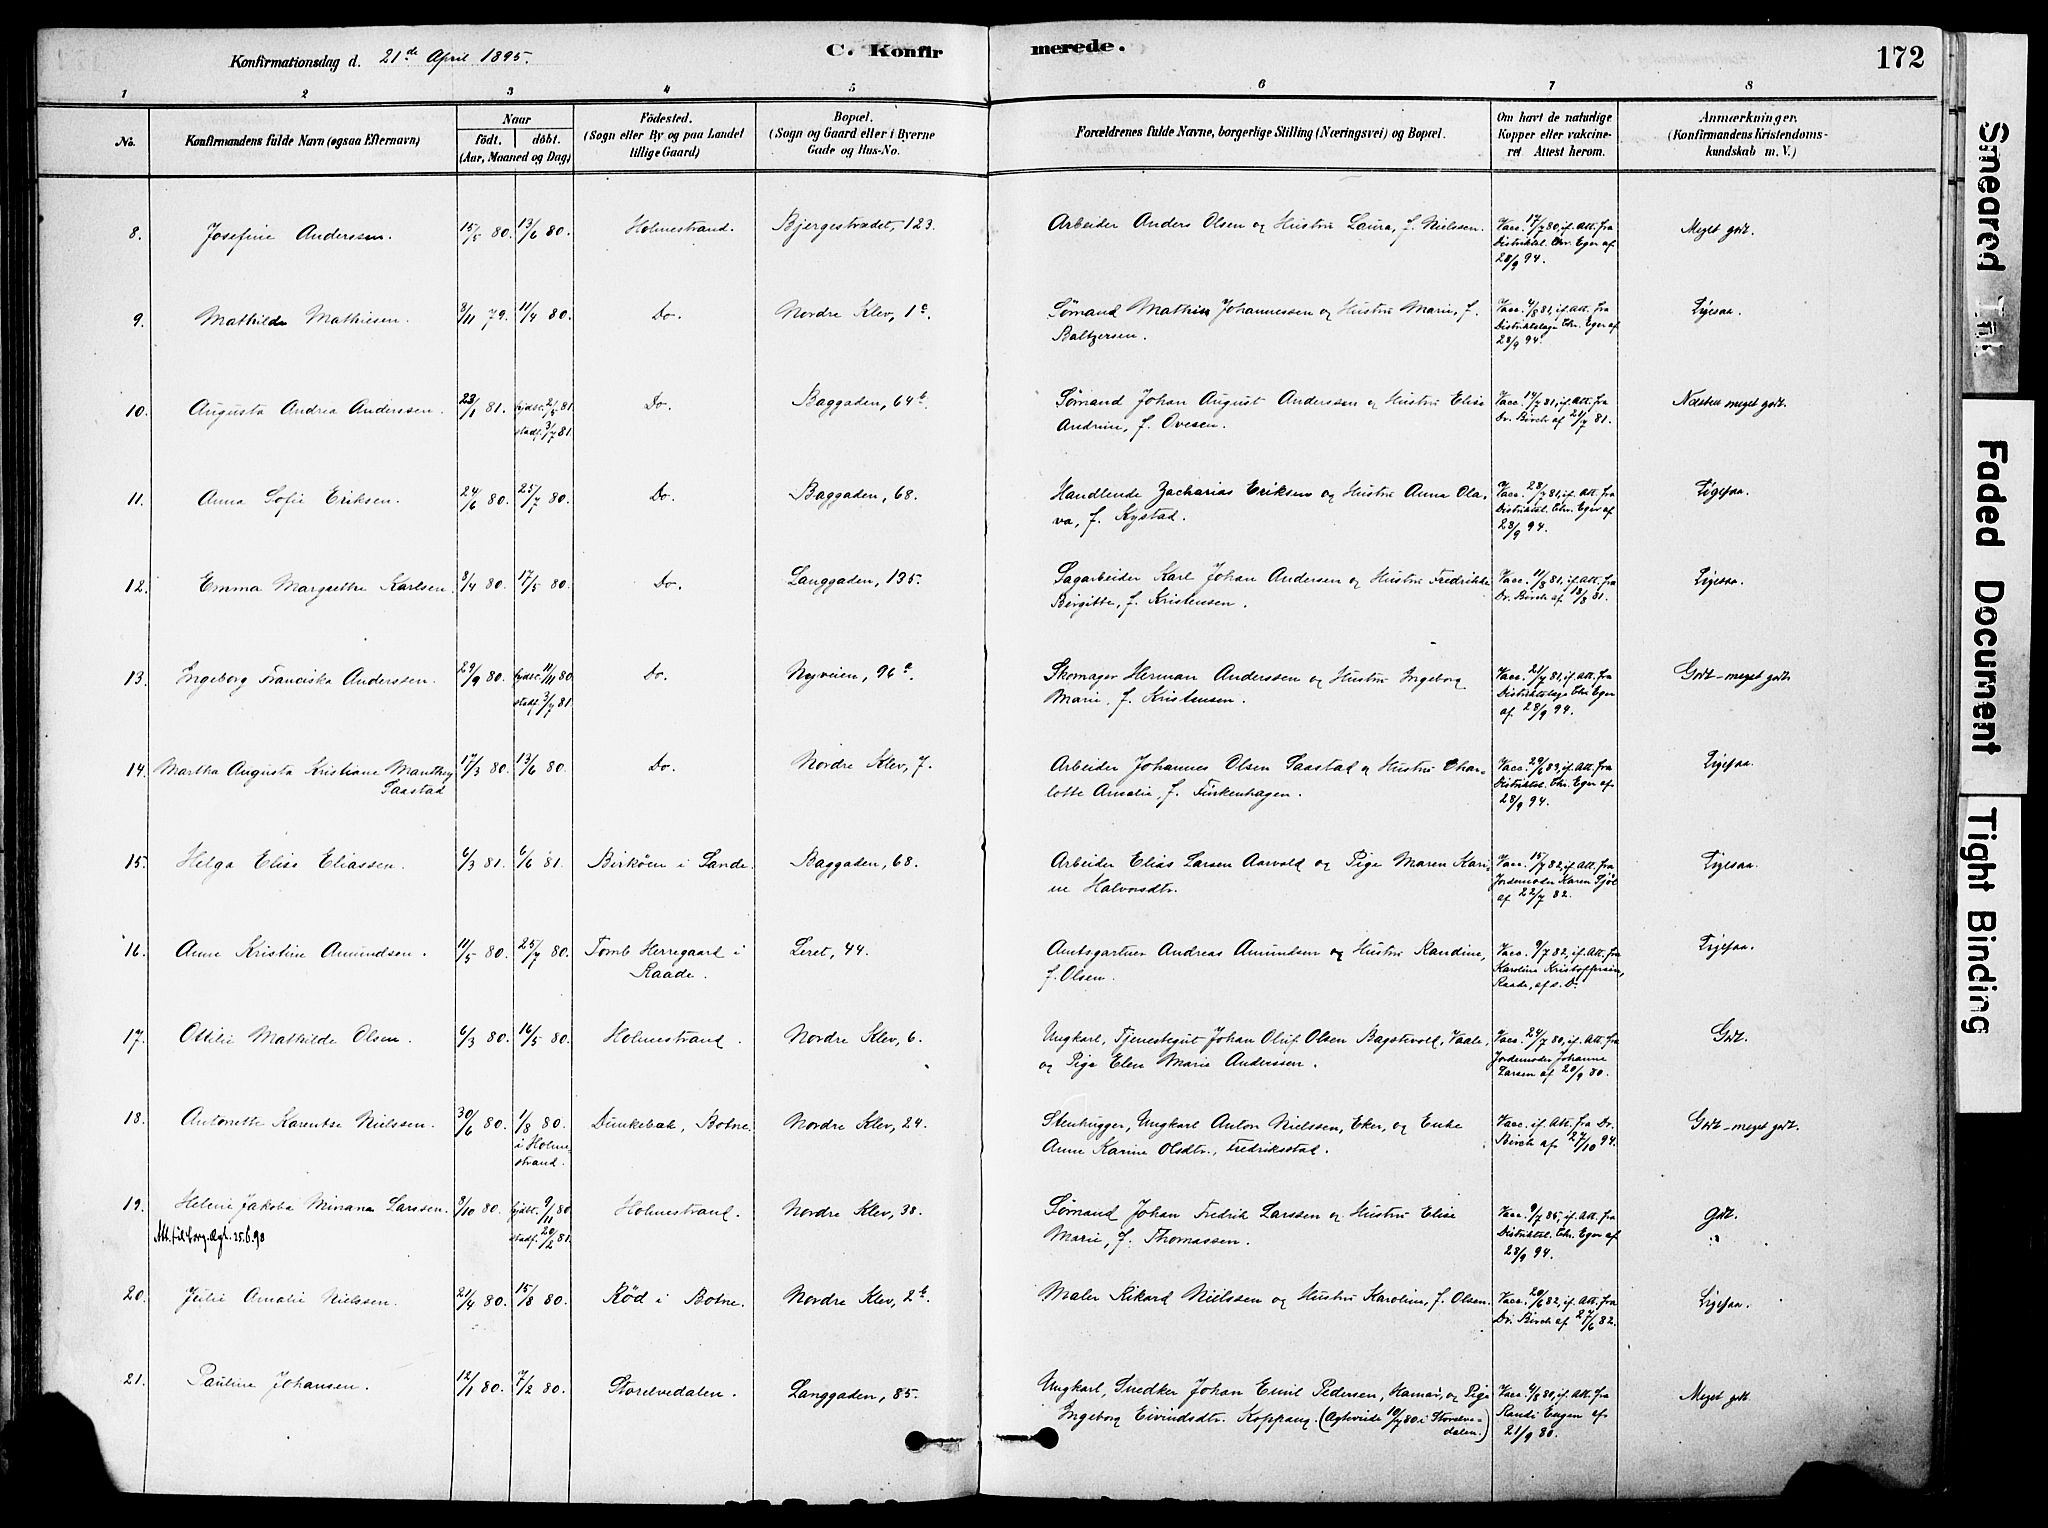 Konfirmationsdag d. 21de April 1895.
C. Konfirmerede.
172
1 2 3 4 5 6 7 8
No.
Konfirmandens fulde Navn (ogsaa Efternavn)
Naar
født. døbt.
(Aar, Maaned og Dag)
Fødested.
(Sogn eller By og paa Landet
tillige Gaard)
Bopæl.
(Sogn og Gaard eller i Byerne
Gade og Hus-No.
Forældrenes fulde Navne, borgerlige Stilling (Næringsvei) og Bopæl.
Om havt de naturlige
Kopper eller vakcine-
ret. Attest herom.
Anmærkninger.
(Konfirmandens Kristendoms-
kundskab m. V.)
8. Josefine Anderssen. 15/5 80. 13/6 80. Holmestrand. Bjergestrædet, 123. Arbeider Anders Olsen og Hustru Laura, f. Nielssen. Vacc. 17/7 80, if. Att. fra
Distriktsl. Chr. Eger af
28/9 94.
Meget godt.
9. Mathilde Mathiesen. 3/11 79. 11/4 80. Do. Nordre Klev, 1a. Sømand Mathias Johannessen og Hustru Marie, f.
Baltzersen.
Vacc. 4/8 81, if. Att. fra
Distriktslæge Chr. Eger af
28/9 94.
Ligesaa.
10. Augusta Andrea Anderssen. 23/1 81. hjdbt. 2/5 81.
stadf. 3/7 81.
Do. Baggaden, 64b. Sømand Johan August Anderssen og Hustru Elise
Andrine, f. Ovesen.
Vacc. 14/7 81, if. Att. fra
Dr. Birch af 21/7 81.
Næsten meget godt.
11. Anna Sofie Eriksen. 24/6 80. 25/7 80. Do. Baggaden, 68. Handlende Zacharias Eriksen og Hustru Anna Ola-
va, f. Kystad.
Vacc. 28/7 81, if. Att. fra
Distriktsl. Chr. Eger af
28/9 94.
Ligesaa.
12. Emma Margrethe Karlsen. 3/4 80. 17/5 80. Do. Langgaden, 135. Sagarbeider Karl Johan Andersen og Hustru Fredrikke
Birgitte, f. Kristensen.
Vacc. 11/8 81, if. Att. fra
Dr. Birch af 18/8 81.
Ligesaa.
13. Ingeborg Franciska Anderssen. 29/9 80. hjdbt. 11/11 80
stadf. 3/7 81.
Do. Nyveien, 96a. Skomager Herman Anderssen og Hustru Ingeborg
Marie, f. Kristensen.
Vacc. 21/7 81, if. Att. fra
Distriktslæge Chr. Eger
af 28/9 94.
Godt–meget godt.
14. Martha Augusta Kristiane Manthey
Saastad
17/3 80. 13/6 80. Do. Nordre Klev, 7. Arbeider Johannes Olsen Saastad og Hustru Char-
lotte Amalie, f. Finkenhagen.
Vacc. 29/6 83, if. Att. fra
Distriktsl. Chr. Eger af
28/9 94.
Ligesaa.
15. Helga Elise Eliassen. 6/3 81. 6/6 81. Birkøen i Sande. Baggaden, 68. Arbeider Elias Larsen Aarvold og Pige Maren Kari-
ne Halvorsdtr.
Vacc. 15/7 82, if. Att. fra
Jordemoder Karen Sjöl
af 22/7 82.
Ligesaa.
16. Anne Kristine Amundsen. 11/5 80. 25/7 80. Tomb Herregaard i
Raade.
Leret, 44. Amtsgartner Andreas Amundsen og Hustru Randine,
f. Olsen.
Vacc. 9/7 82, if. Att. fra
Karoline Kristoffersen,
Raade, af s. D.
Ligesaa.
17. Ottilie Mathilde Olsen. 6/3 80. 16/5 80. Holmestrand. Nordre Klev, 6. Ungkarl, Tjenestegut Johan Oluf Olsen Bagstevold, Vaale,
og Pige Elen Marie Anderssen.
Vacc. 24/7 80, if. Att. fra
Jordemoder Johanne
Larsen af 20/9 80.
Godt.
18. Antonette Karentse Nielssen. 30/6 80. 1/8 80.
i Holme-
strand.
Dunkebæk, Botne. Nordre Klev, 24. Stenhugger, Ungkarl Anton Nielssen, Eker, og Enke
Anne Karine Olsdtr., Fredriksstad.
Vacc. if. Att. fra Dr.
Birch af 27/10 94.
Godt–meget godt.
19. Helene Jakoba Minana Larssen. 3/10 80. hjdbt. 9/11 80
stadf. 20/2 81.
Holmestrand. Nordre Klev, 38. Sømand Johan Fredrik Larssen og Hustru Elise
Marie, f. Thomassen.
Vacc. 9/7 85, if. Att. fra
Distriktsl. Chr. Eger af
28/9 94.
Godt.
Att. til borg. Ægt. 25.6.98
20. Julie Amalie Nielssen. 21/4 80. 15/8 80. Rød i Botne. Nordre Klev, 2b. Maler Rikard Nielssen og Hustru Karoline, f. Olsen. Vacc. 20/6 82, if. Att. fra
Dr. Birch af 27/6 82.
Ligesaa.
21. Pauline Johansen. 12/1 80. 7/2 80. Storelvedalen. Langgaden, 85. Ungkarl, Snedker Johan Emil Pedersen, Hamar, og Pige
Ingeborg Eivindsdtr. Koppang. (Ægteviede 10/7 80 i Storelve-
dalen.)
Vacc. 4/8 80, if. Att. fra
Randi Engen af
21/9 80.
Meget godt
Smeared Ink
Faded Document
Tight Binding